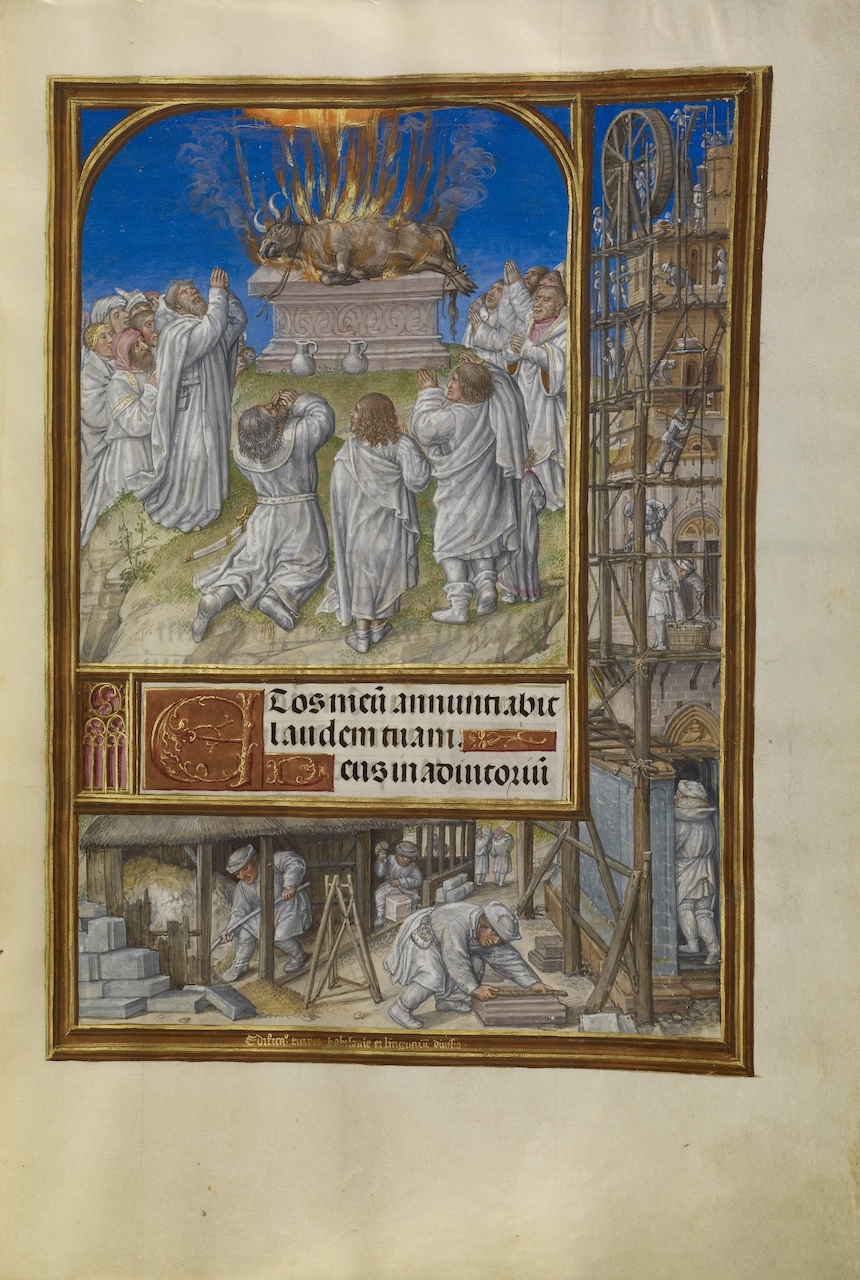 Et os meū annuntiabit
laudem tuam.
Deus in adiutoriū
Edifica᷑ turris babilonie et linguarū diuisio.